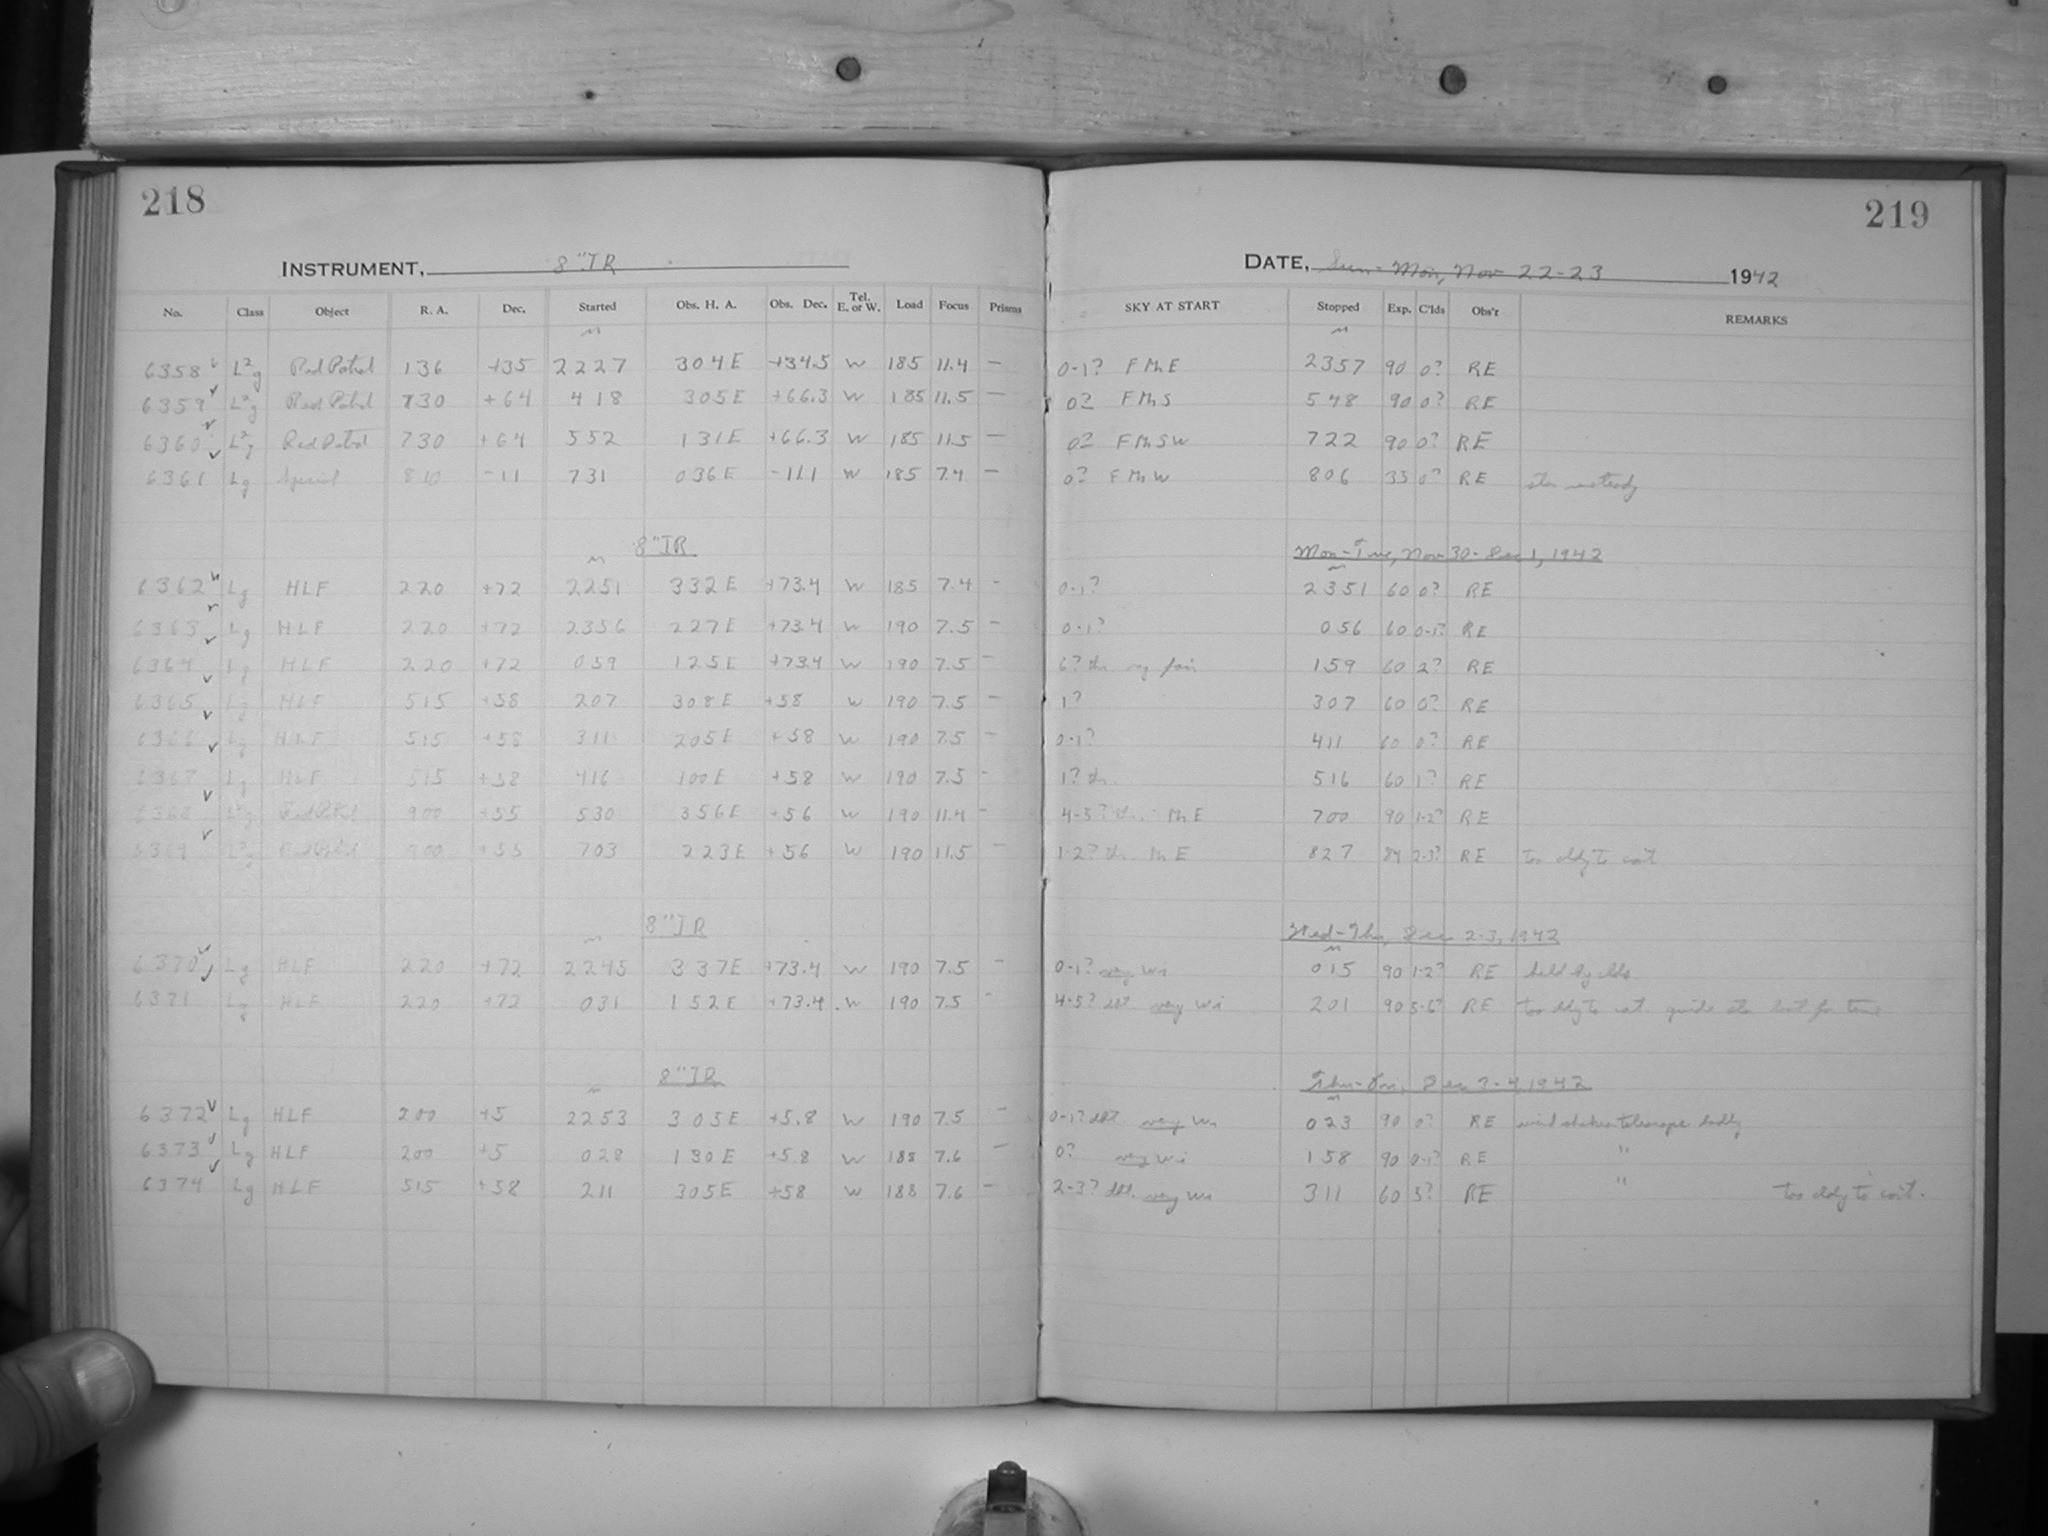 218
219
INSTRUMENT, 8" IR
DATE, Sun-Mon, Nov 22-23 1942
No. Class Object R. A. Dec. Started Obs. H. A. Obs. Dec. Tel. E. or W. Load Focus Prisms SKY AT START Stopped Exp. C'lds Obs'r REMARKS
6358 L²g Red Patrol 136 +35 2227 304E +34.5 W 185 11.4 — 0-1? F M E 2357 90 0? RE
6359 L²g Red Patrol 730 +64 418 305E +66.3 W 185 11.5 — 0? F M S 548 90 0? RE
6360 L²g Red Patrol 730 +64 552 131E +66.3 W 185 11.5 — 0? F M SW 722 90 0? RE
6361 Lg Special 810 -11 731 036E -11.1 W 185 7.4 — 0? F M W 806 35 0? RE star unsteady
8" IR Mon-Tue, Nov 30-Dec 1, 1942
6362 Lg HLF 220 +72 2251 332E +73.4 W 185 7.4 - 0-1? 2351 60 0? RE
6363 Lg HLF 220 +72 2356 227E +73.4 W 190 7.5 - 0-1? 056 60 0-1? RE
6364 Lg HLF 220 +72 059 125E +73.4 W 190 7.5 - 6? th. 159 60 2? RE
6365 Lg HLF 515 +58 207 308E +58 W 190 7.5 — 1? 307 60 0? RE
6366 Lg HLF 515 +58 311 205E +58 W 190 7.5 - 0-1? 411 60 0? RE
6367 Lg HLF 515 +58 416 100E +58 W 190 7.5 - 1? th. 516 60 1? RE
6368 L²g Red Patrol 900 +55 530 356E +56 W 190 11.4 - 4-5? th. M E 700 90 1-2? RE
6369 L²g Red Patrol 900 +55 703 223E +56 W 190 11.5 - 1-2? th. M E 827 84 2-3? RE too cldy to cont
8" IR Wed-Thu, Dec 2-3, 1942
6370 Lg HLF 220 +72 2245 337E +73.4 W 190 7.5 - 0-1? very Wi 015 90 1-2? RE held by clds.
6371 Lg HLF 220 +72 031 152E +73.4 W 190 7.5 - 4-5? dst. very Wi 201 90 5-6? RE too cldy to cont. guide star lost for time
8" IR Thu-Fri, Dec 3-4, 1942
6372 Lg HLF 200 +5 2253 305E +5.8 W 190 7.5 — 0-1? dst. very Wi 023 90 0? RE wind shakes telescope badly
6373 Lg HLF 200 +5 028 130E +5.8 W 188 7.6 — 0? very Wi 158 90 0-1? RE "
6374 Lg HLF 515 +58 211 305E +58 W 188 7.6 - 2-3? dst. very Wi 311 60 5? RE " too cldy to cont.